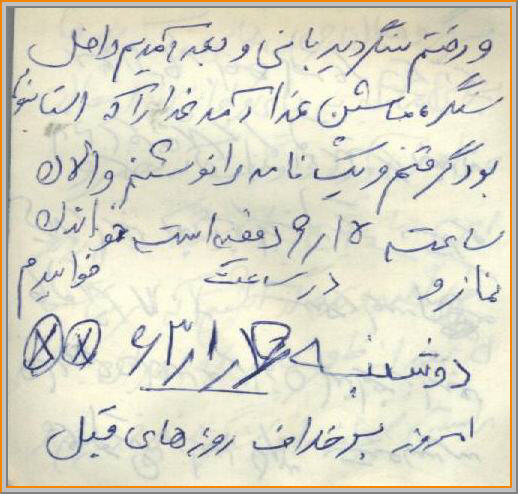 و رفتم سنگر دیدبانی و بعد آمدیم داخل
سنگر ماشین غذا آمد غذا را که استانبولی
بود گرفتم و یک نامه را نوشتم و الان
ساعت ۹/۱۵ دقیقه است
نماز و در ساعت خوابیدم
دوشنبه ۶۳/۱/
امروز بر خلاف روزهای قبل